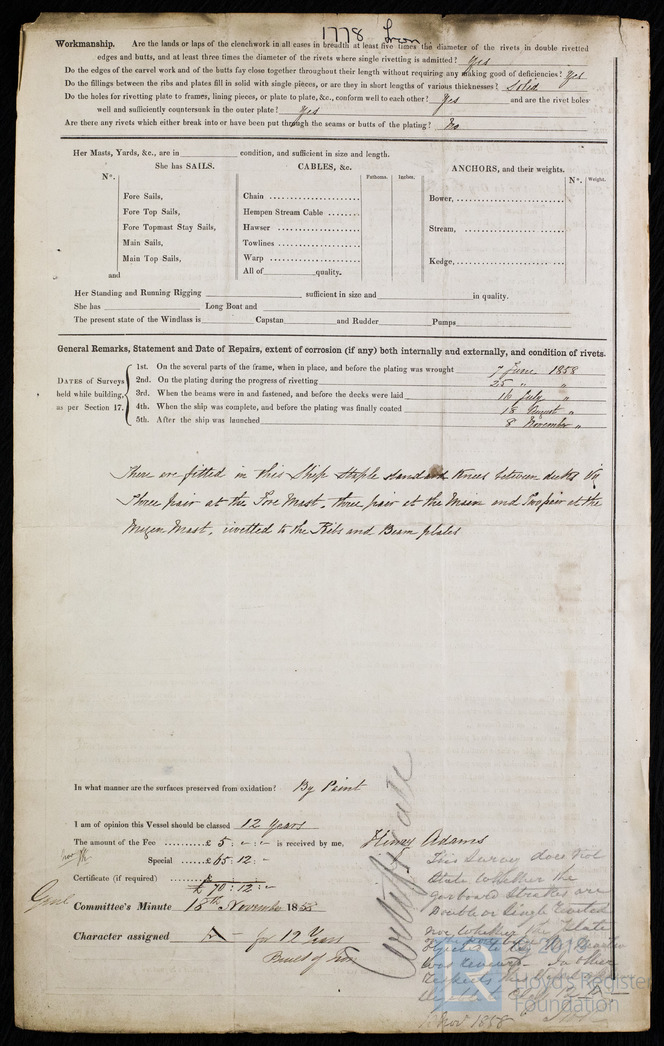 1778 Iron
Workmanship. Are the lands or laps of the clenchwork in all cases in breadth at least five times the diameter of the rivets in double rivetted
edges and butts, and at least three times the diameter of the rivets where single rivetting is admitted? Yes
Do the edges of the carvel work and of the butts fay close together throughout their length without requiring any making good of deficiencies? Yes
Do the fillings between the ribs and plates fill in solid with single pieces, or are they in short lengths of various thicknesses? Solid
Do the holes for rivetting plate to frames, lining pieces, or plate to plate, &c., conform well to each other? Yes and are the rivet holes
well and sufficiently countersunk in the outer plate? Yes
Are there any rivets which either break into or have been put through the seams or butts of the plating? No
Her Masts, Yards, &c., are in condition, and sufficient in size and length.
She has SAILS. CABLES, &c. ANCHORS, and their weights.
No. Fathoms. Inches. No. Weight.
Fore Sails, Chain Bower,
Fore Top Sails, Hempen Stream Cable
Fore Topmast Stay Sails, Hawser Stream,
Main Sails, Towlines
Main Top Sails, Warp Kedge,
and All of quality.
Her Standing and Running Rigging sufficient in size and in quality.
She has Long Boat and
The present state of the Windlass is Capstan and Rudder Pumps
General Remarks, Statement and Date of Repairs, extent of corrosion (if any) both internally and externally, and condition of rivets.
DATES of Surveys held while building, as per Section 17.
1st. On the several parts of the frame, when in place, and before the plating was wrought 7 June 1858
2nd. On the plating during the progress of rivetting 25 " "
3rd. When the beams were in and fastened, and before the decks were laid 16 July "
4th. When the ship was complete, and before the plating was finally coated 18 August "
5th. After the ship was launched 8 November "
There are fitted in this Ship Staple Standard Knees between decks Viz
Three pair at the Fore Mast, three pair at the Main and Two pair at the
Mizen Mast, rivetted to the Ribs and Beam plates
In what manner are the surfaces preserved from oxidation? By Paint
I am of opinion this Vessel should be classed 12 Years
The amount of the Fee £ 5 : - : - is received by me, Henry Adams
Special £ 65 : 12 : -
Certificate (if required)
£ 70 : 12 : -
Committee's Minute 16th November 1858
Character assigned A - for 12 Years
Built of Iron
Certificate
This Survey does not
State whether the
garboard Strakes are
Double or Single riveted
nor whether the plate
was
In other
respects
Nov 1858
LR
2018
Lloyd's Register
Foundation